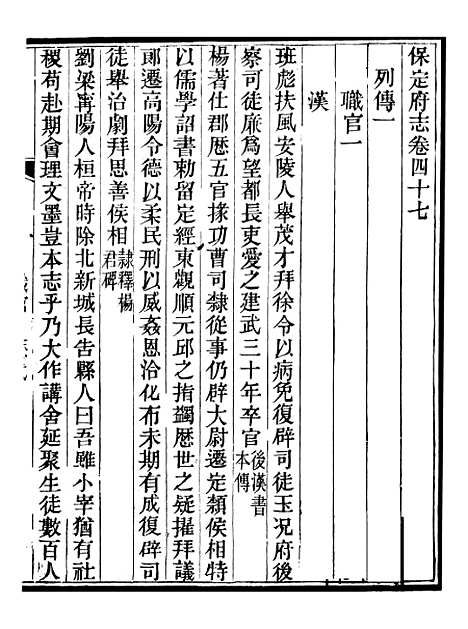 保定府志卷四十七
列傳一
職官一
漢
班彪扶風安陵人舉茂才拜徐令以病免復辟司徒玉况府後
察司徒廉爲望都長吏愛之建武三十年卒官後漢書本傳
楊著仕郡歴五官掾功曹司隸從事仍辟大尉遷定潁侯相特
以儒學詔書勅留定經東觀順元邱之指蠲歴世之疑擢拜議
郎遷高陽令德以柔民刑以威姦恩洽化布未期有成復辟司
徒舉治劇拜思善侯相隸釋楊君碑
劉梁甯陽人桓帝時除北新城長告縣人曰吾雖小宰猶有社
稷苟赴期會理文墨豈本志乎乃大作講舍延聚生徒數百人